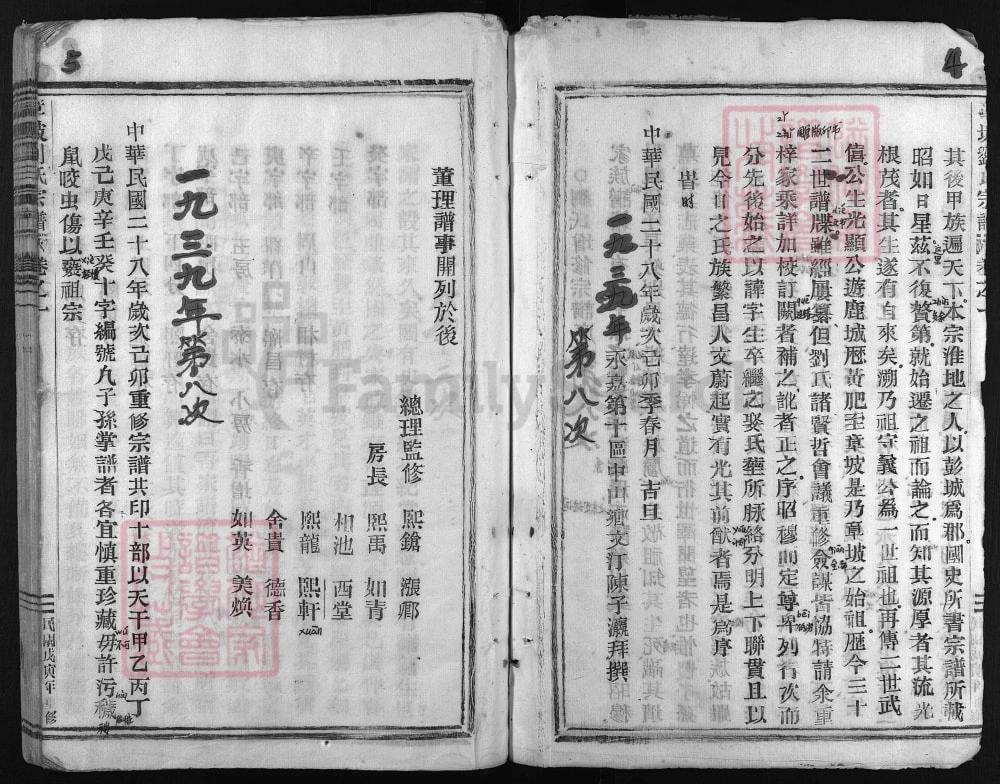 4
其後甲族遍天下本宗淮地之人以彭城爲郡國史所書宗譜所載
昭如日星茲不復贅第就始遷之祖而論之而知其源厚者其流光
根茂者其生遂有自來矣溯乃祖守義公爲一世祖也再傳二世武
僖公生光顯公遊鹿城歷黃肥至章坡是乃章坡之始祖歷今三十
二世譜牒雖經屢纂但劉氏諸賢哲會議重修僉謀皆協特請余重
梓家乘詳加校訂闕者補之訛者正之序昭穆而定尊卑列行次而
分先後始之以諱字生卒繼之娶氏塟所脉絡分明上下聯貫且以
見今日之氏族繁昌人文蔚起實有光其前猷者焉是爲序
旹時
中華民國二十八年歲次己卯季春月 吉旦
一九三九年 永嘉第十區中山鄉文汀陳子瀛拜撰
第八次
5
董理譜事開列於後
總理監修 熙鎗 漲鄉
房長 熙禹 如青
相池 西堂
熙龍 熙軒
xuān
舍貴 德香
如英 美煥
一九三九年第八次
中華民國二十八年歲次己卯重修宗譜共印十部以天干甲乙丙丁
戊己庚辛壬癸十字編號凢子孫掌譜者各宜慎重珍藏毋許污穢
鼠咬虫傷以襄祖宗